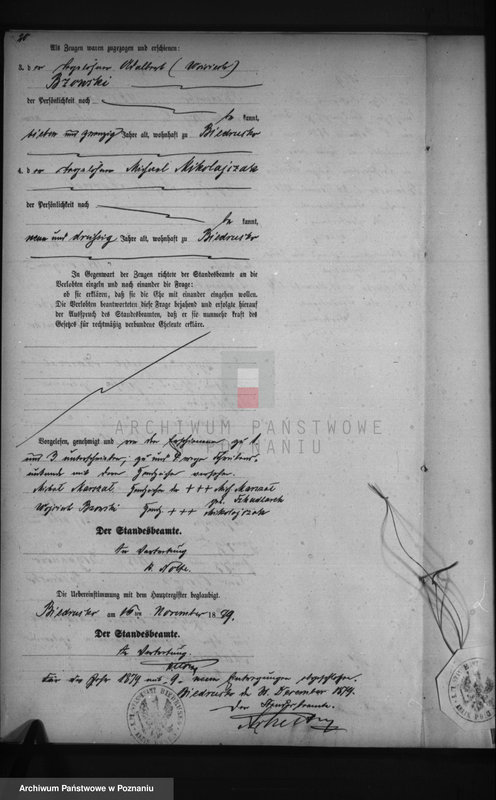 20
Als Zeugen waren zugezogen und erschienen:
3. der Tagelöhner Adalbert (Woiciech)
Browski
der Persönlichkeit nach
be kannt,
sieben und zwanzig Jahre alt, wohnhaft zu Biedrusko
4. der Tagelöhner Michael Mikolajczak
der Persönlichkeit nach
be kannt,
neun und dreißig Jahre alt, wohnhaft zu Biedrusko
In Gegenwart der Zeugen richtete der Standesbeamte an die
Verlobten einzeln und nach einander die Frage:
ob sie erklären, daß sie die Ehe mit einander eingehen wollen.
Die Verlobten beantworteten diese Frage bejahend und erfolgte hierauf
der Ausspruch des Standesbeamten, daß er sie nunmehr kraft des
Gesetzes für rechtmäßig verbundene Eheleute erkläre.
ARCHIWUM PAŃSTWOWE
W POZNANIU
Vorgelesen, genehmigt und von den Erschienenen zu 1
und 3 unterschrieben, zu und 4 wegen Schreibens
unkunde mit dem Handzeichen versehen.
Michał Marszał Handzeichen der +++ Marszał
geb.
Wojciech Browski Handz. +++ Mikolajczak
Der Standesbeamte.
In Vertretung
Nolte.
Die Uebereinstimmung mit dem Hauptregister beglaubigt.
Biedrusko am 16ten November 1879.
Der Standesbeamte.
In Vertretung.
Nolte
Für das Jahr 1879 mit 9 neun Eintragungen abgeschlossen.
Biedrusko den 31 December 1879.
Der Standesbeamte.
Archiwum Państwowe w Poznaniu